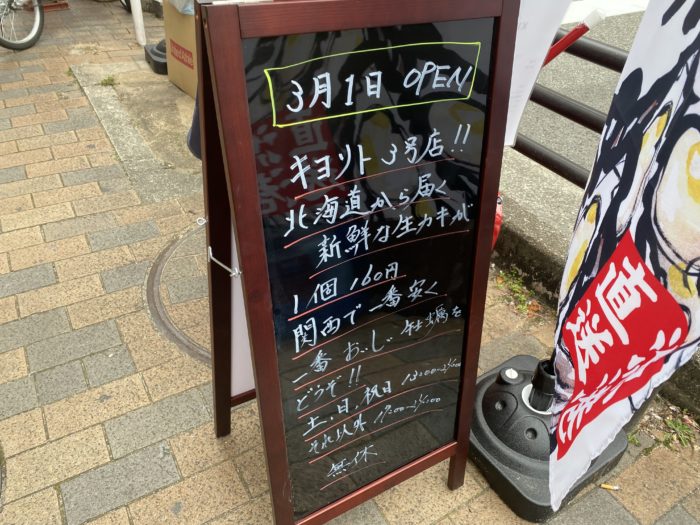 3月1日 OPEN
キヨリト 3号店!!
北海道から届く
新鮮な生カキが
1個 160円
関西で一番安く
一番 おいしい 牡蠣を
どうぞ!!
土、日、祝日 13:00~23:00
それ以外 17:00~23:00
無休
直送